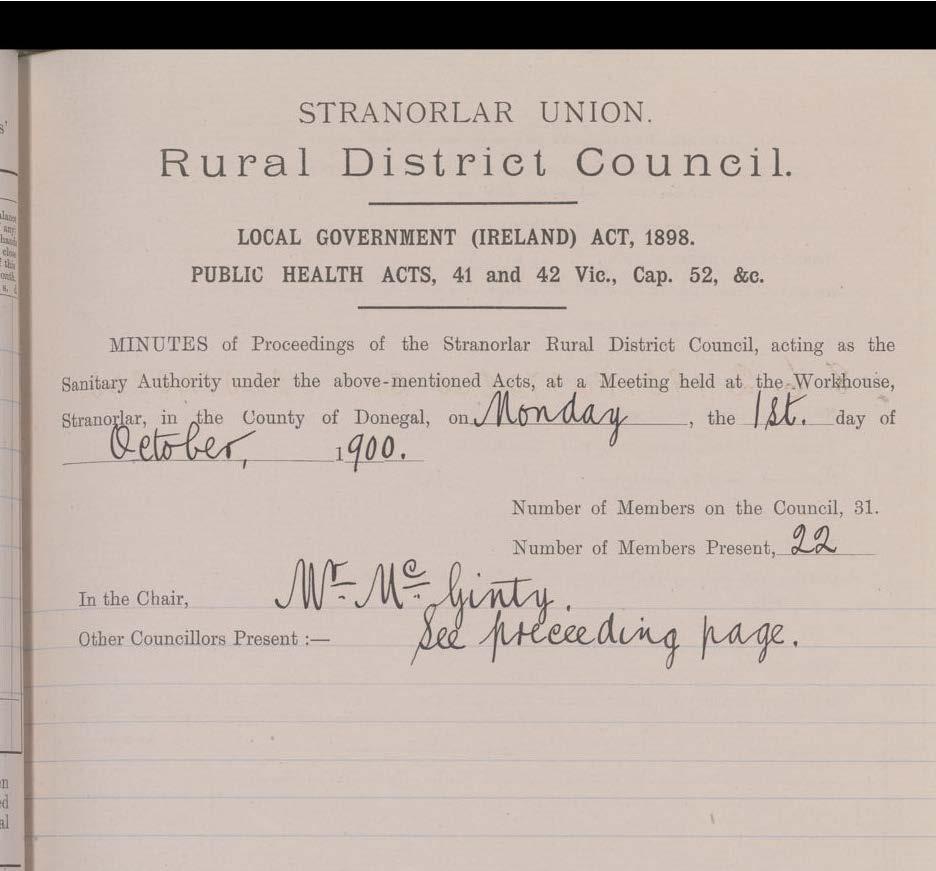 STRANORLAR UNION.
Rural District Council.
LOCAL GOVERNMENT (IRELAND) ACT, 1898.
PUBLIC HEALTH ACTS, 41 and 42 Vic., Cap. 52, &c.
MINUTES of Proceedings of the Stranorlar Rural District Council, acting as the
Sanitary Authority under the above-mentioned Acts, at a Meeting held at the Workhouse,
Stranorlar, in the County of Donegal, on Monday, the 1st. day of
October, 1900.
Number of Members on the Council, 31.
Number of Members Present, 22
In the Chair, Mr. Mc. Ginty.
Other Councillors Present :— See preceeding page.